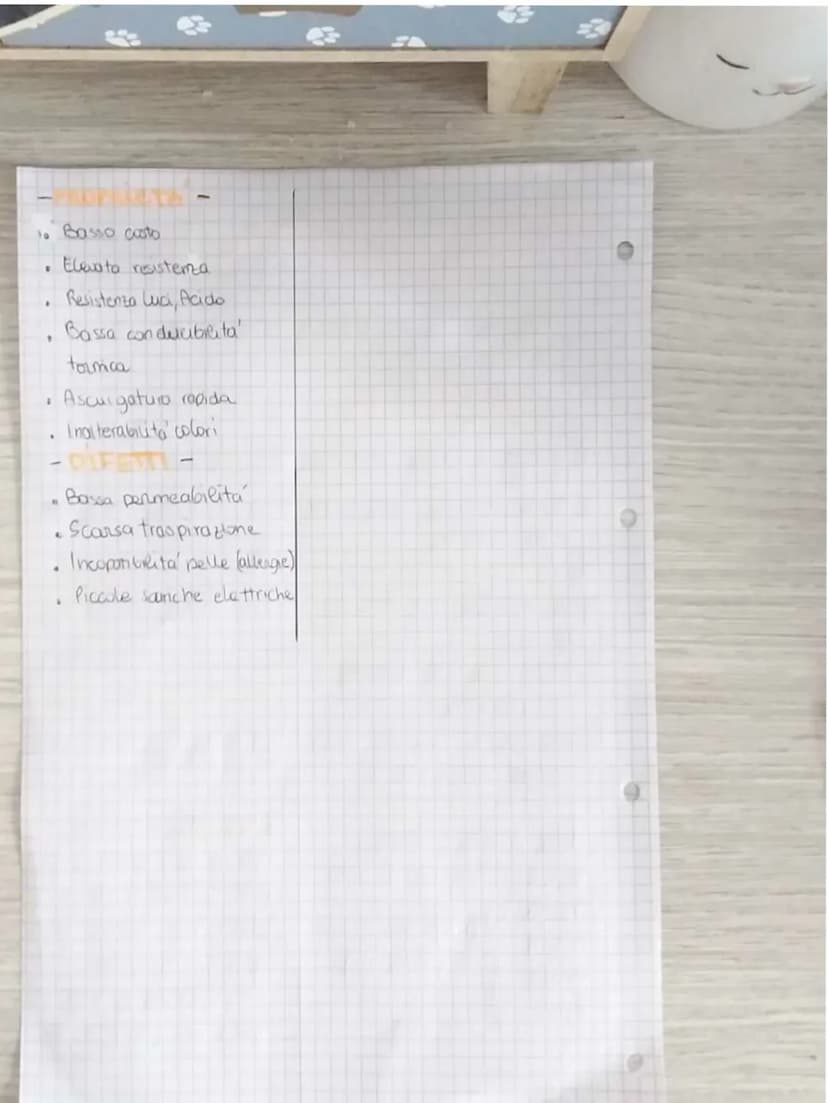 - PROPRIETÀ -
• Basso costo
• Elevata resistenza
• Resistenza luci, Acido
• Bassa conducibilità
termica
• Asciugatura rapida
• Inalterabilità colori
- DIFETTI -
• Bassa permeabilità
• Scarsa traspirazione
• pelle (allergie)
• Piccole elettriche